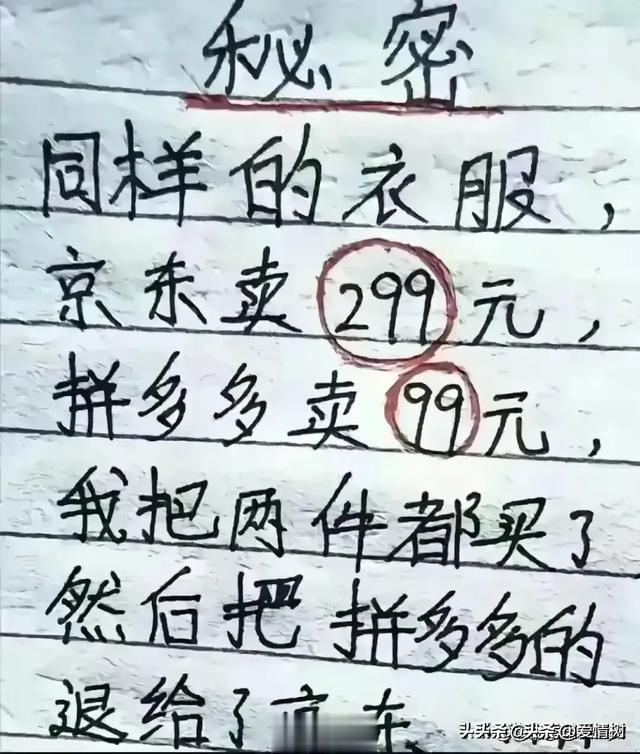 秘密
同样的衣服，
京东卖299元，
拼多多卖99元，
我把两件都买了
然后把拼多多的
退给了京东
头头杀@头杀@爱情树